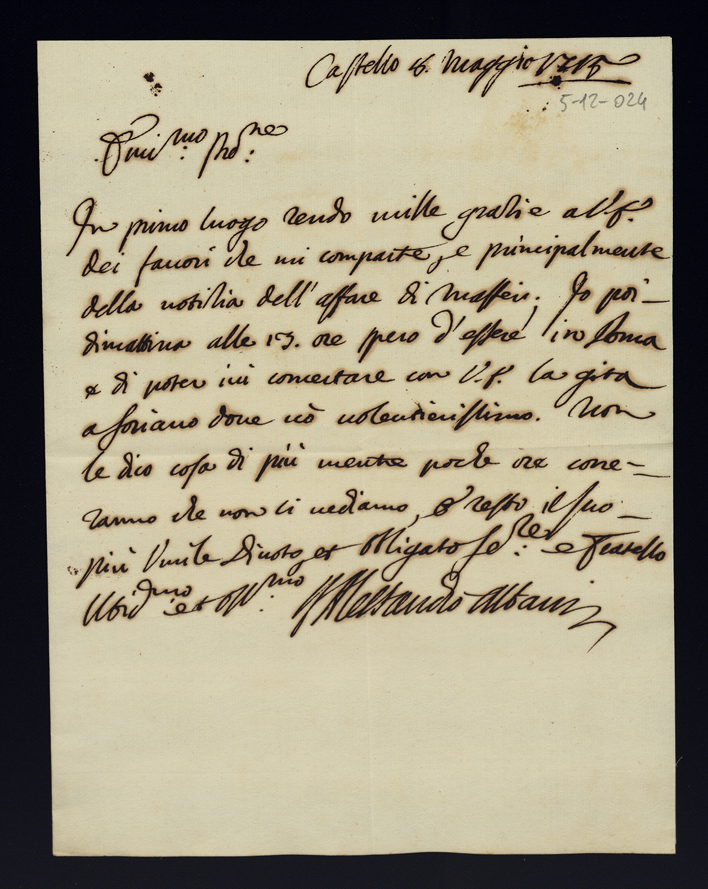 Castello 8. Maggio 1715
5-12-024
Emi.mo Pro.ne
In primo luogo rendo mille grazie a V.S.
dei favori che mi comparte, e principalmente
della notizia dell'affare di Maffei. Io poi
dimattina alle 13. ore spero d'essere in Roma
e di poter ivi concertare con V.S. la gita
a Soriano dove vò volentierissimo. Non
le dico cosa di più mentre poche ore corre-
ranno che non ci vediamo, e resto il suo
più Umile Divoto, et Obligato Se.re e Fratello
Ubid.mo et Oss.mo Alessandro Albani